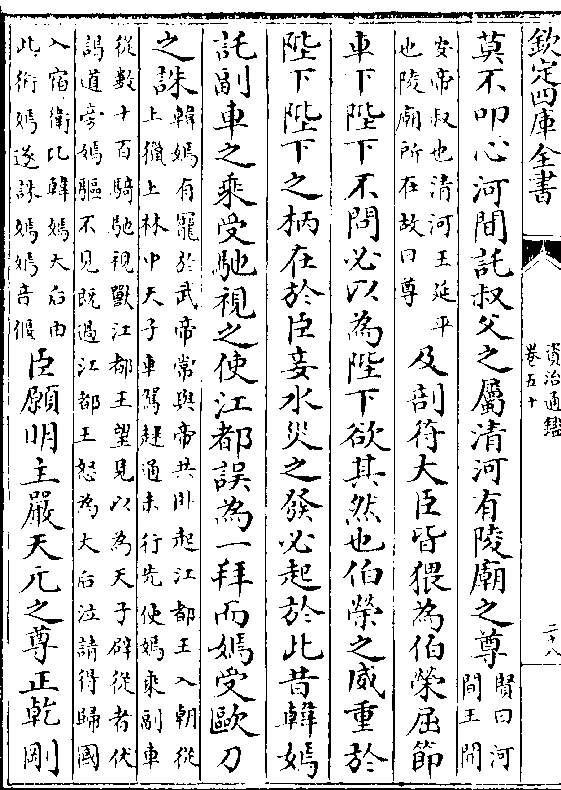 欽定四庫全書
資治通鑑
卷五十
二十八
莫不叩心河間託叔父之屬清河有陵廟之尊
賢曰河
間王開
安帝叔也清河王延平
也陵廟所在故曰尊
及剖符大臣皆猥為伯榮屈節
車下陛下不問必以為陛下欲其然也伯榮之威重於
陛下陛下之柄在於臣妾水災之發必起於此昔韓嫣
託副車之乘受馳視之使江都誤為一拜而嫣受歐刀
之誅
韓嫣有寵於武帝常與帝共卧起江都王入朝從
上獵上林中天子車駕趕道未行先使嫣乘副車
從數十百騎馳視獸江都王望見以為天子辟從者伏
謁道旁嫣驅不見既過江都王怒為太后泣請得歸國
入宿衛比韓嫣太后由
此銜嫣遂誅嫣嫣音偃
臣願明主嚴天元之尊正乾剛